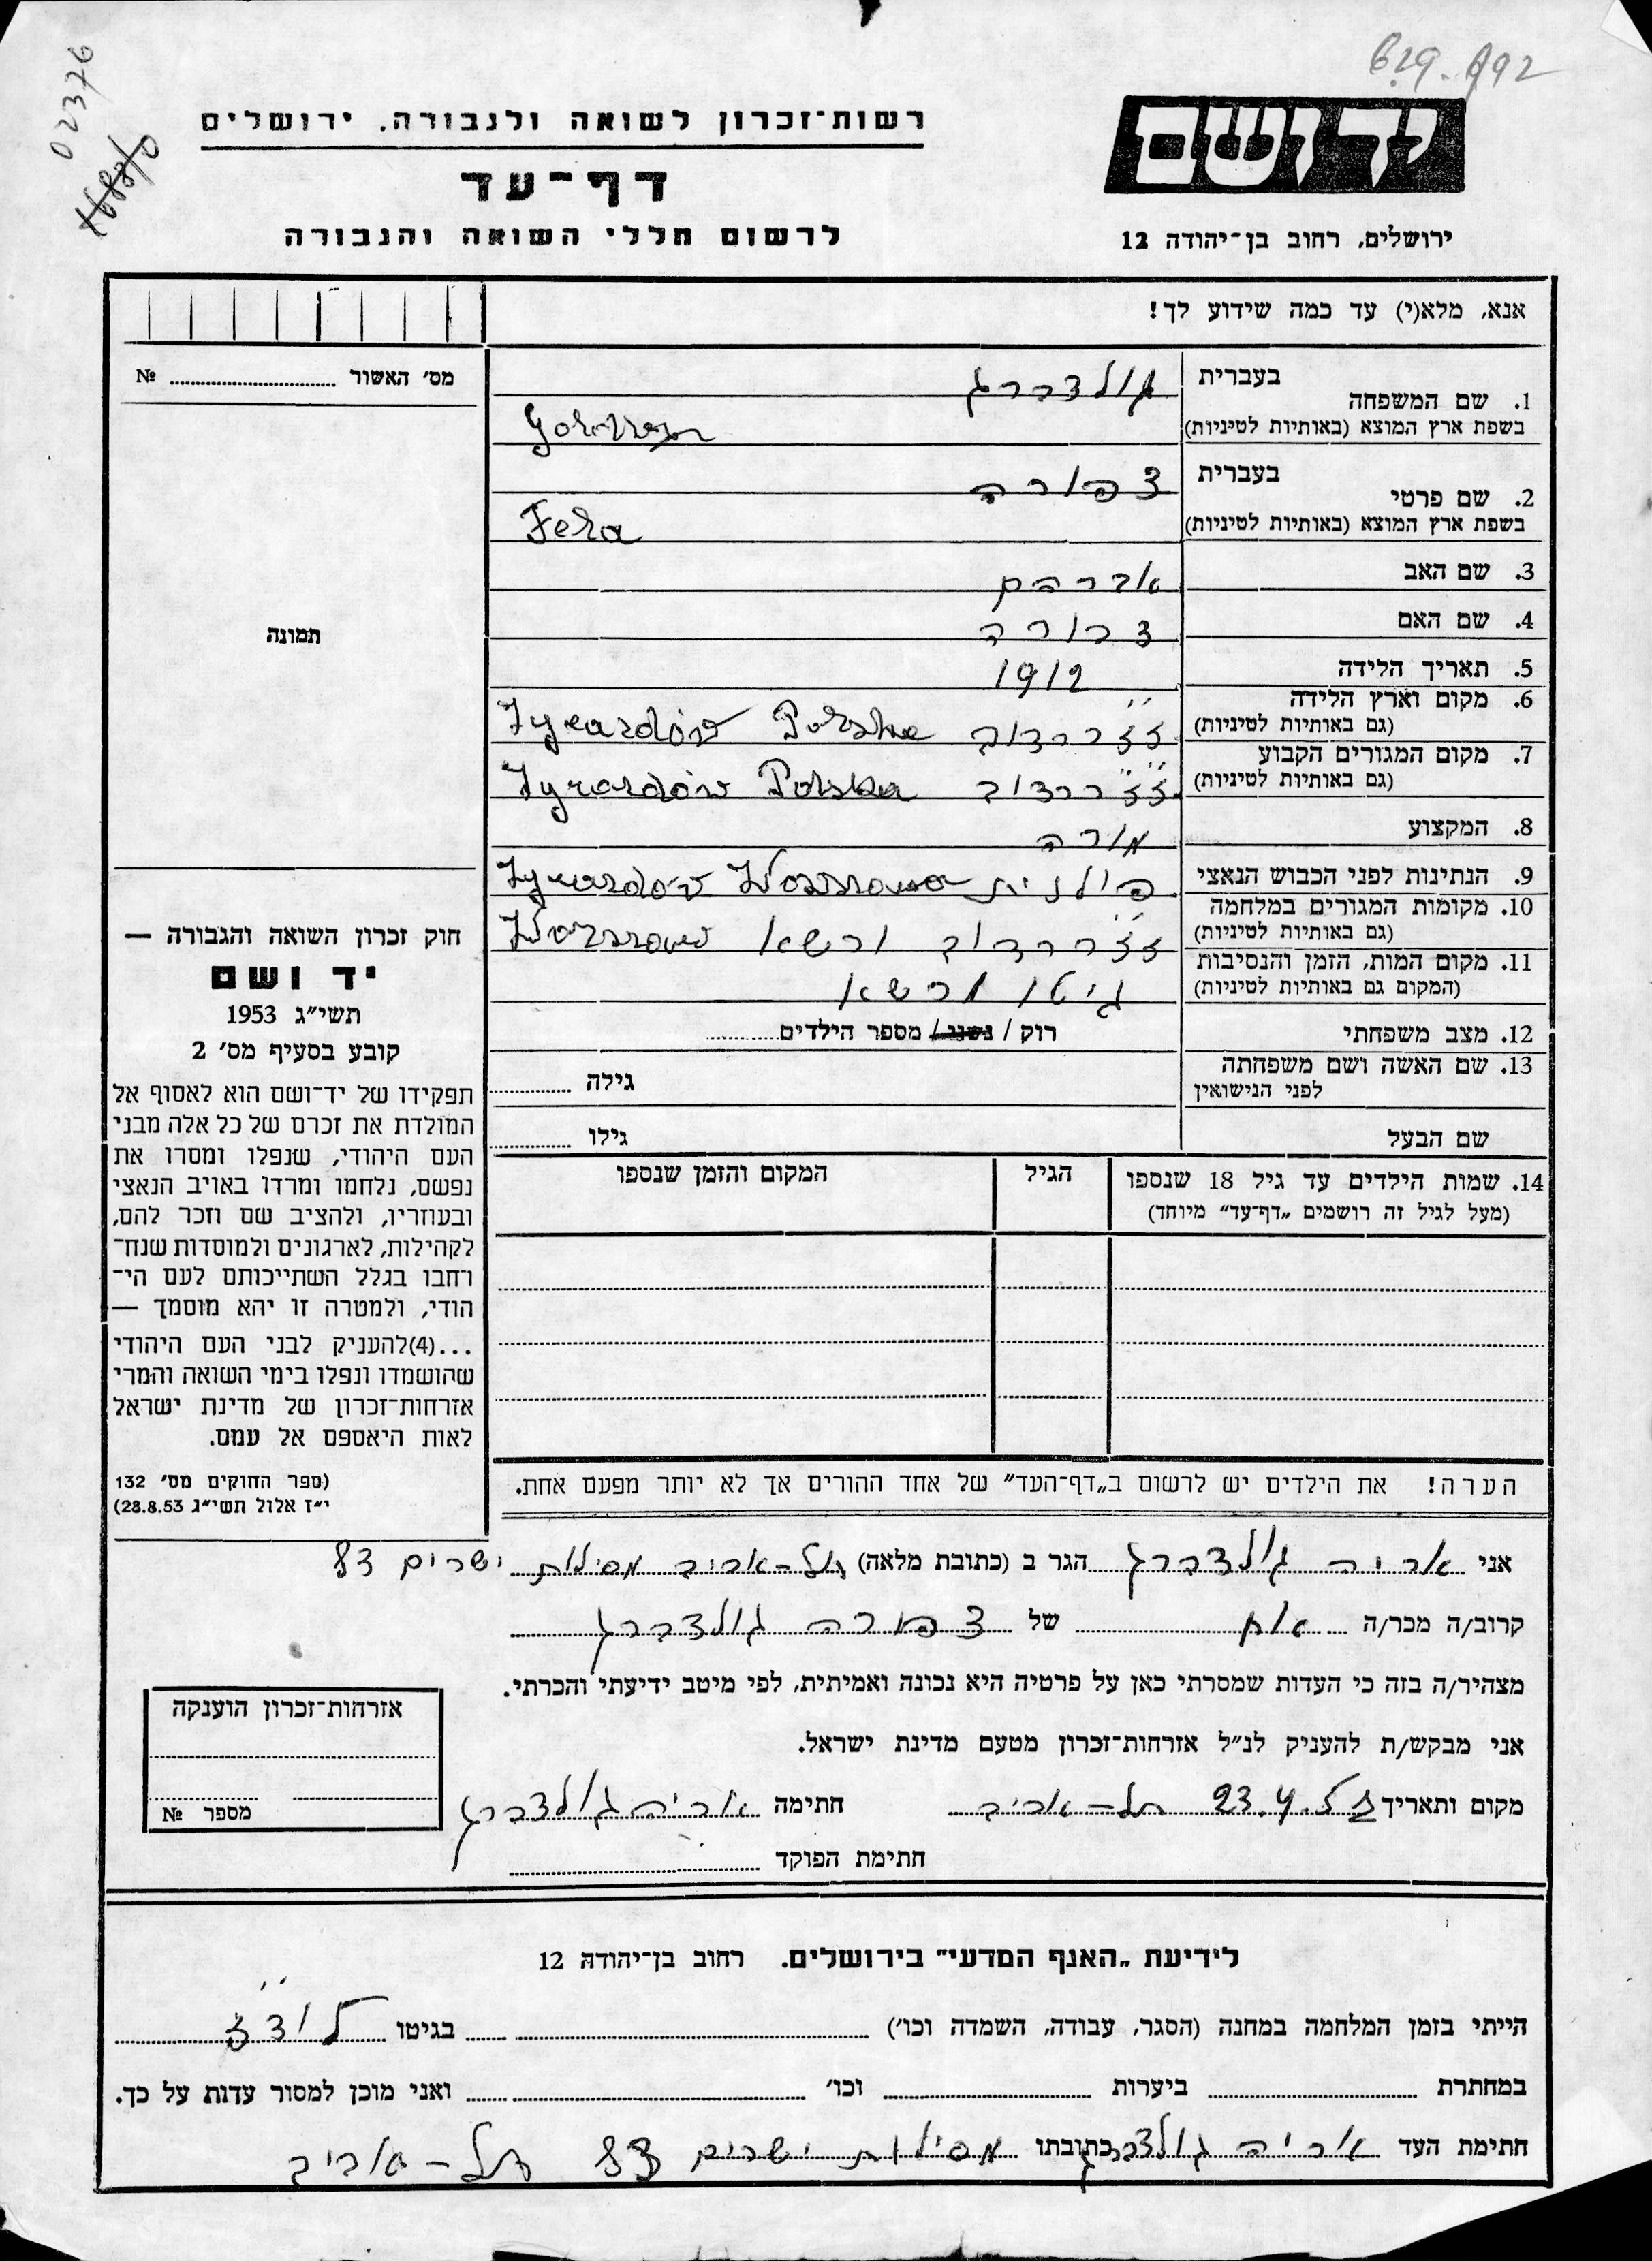 629. 992
02376
רשות־זכרון לשואה ולגבורה, ירושלים
דף־עד
לרשום חללי השואה והגבורה
יד ושם
ירושלים, רחוב בן־יהודה 12
אנא, מלא(י) עד כמה שידוע לך!
מס׳ האשור № 
תמונה
1. שם המשפחה בעברית גולדברג
בשפת ארץ המוצא (באותיות לטיניות)
2. שם פרטי בעברית צפורה
בשפת ארץ המוצא (באותיות לטיניות) Fela
3. שם האב אברהם
4. שם האם
5. תאריך הלידה 1912
6. מקום וארץ הלידה ז׳ז׳רדוב Żyrardów Polska
(גם באותיות לטיניות)
7. מקום המגורים הקבוע ז׳ז׳רדוב Żyrardów Polska
(גם באותיות לטיניות)
8. המקצוע מורה
9. הנתינות לפני הכבוש הנאצי פולנית Żyrardów Warszawa
10. מקומות המגורים במלחמה ז׳ז׳רדוב ורשא Warszawa
(גם באותיות לטיניות)
11. מקום המות, הזמן והנסיבות גיטו ורשא
(המקום גם באותיות לטיניות)
12. מצב משפחתי רוק / נשוי / מספר הילדים
13. שם האשה ושם משפחתה גילה
לפני הנישואין
שם הבעל גילו
14. שמות הילדים עד גיל 18 שנספו הגיל המקום והזמן שנספו
(מעל לגיל זה רושמים „דף־עד״ מיוחד)
הערה! את הילדים יש לרשום ב„דף־העד״ של אחד ההורים אך לא יותר מפעם אחת.
חוק זכרון השואה והגבורה —
יד ושם
תשי״ג 1953
קובע בסעיף מס׳ 2
תפקידו של יד־ושם הוא לאסוף אל
המולדת את זכרם של כל אלה מבני
העם היהודי, שנפלו ומסרו את
נפשם, נלחמו ומרדו באויב הנאצי
ובעוזריו, ולהציב שם וזכר להם,
לקהילות, לארגונים ולמוסדות שנח־
רחבו בגלל השתייכותם לעם הי־
הודי, ולמטרה זו יהא מוסמך —
...(4)להעניק לבני העם היהודי
שהושמדו ונפלו בימי השואה והמרי
אזרחות־זכרון של מדינת ישראל
לאות היאספם אל עמם.
(ספר החוקים מס׳ 132
י״ז אלול תשי״ג 28.8.53)
אני אריה גולדברג הגר ב (כתובת מלאה) תל-אביב מסילת ישרים 83
קרוב/ה מכר/ה אח של צפורה גולדברג
מצהיר/ה בזה כי העדות שמסרתי כאן על פרטיה היא נכונה ואמיתית, לפי מיטב ידיעתי והכרתי.
אני מבקש/ת להעניק לנ״ל אזרחות־זכרון מטעם מדינת ישראל.
מקום ותאריך 23.4. תל-אביב חתימה אריה גולדברג
חתימת הפוקד
אזרחות־זכרון הוענקה
מספר №
לידיעת „האגף המדעי״ בירושלים. רחוב בן־יהודה 12
הייתי בזמן המלחמה במחנה (הסגר, עבודה, השמדה וכו׳) בגיטו לודז׳
במחתרת ביערות וכו׳ ואני מוכן למסור עדות על כך.
חתימת העד אריה גולדברג כתובתו מסילת ישרים 83 תל-אביב